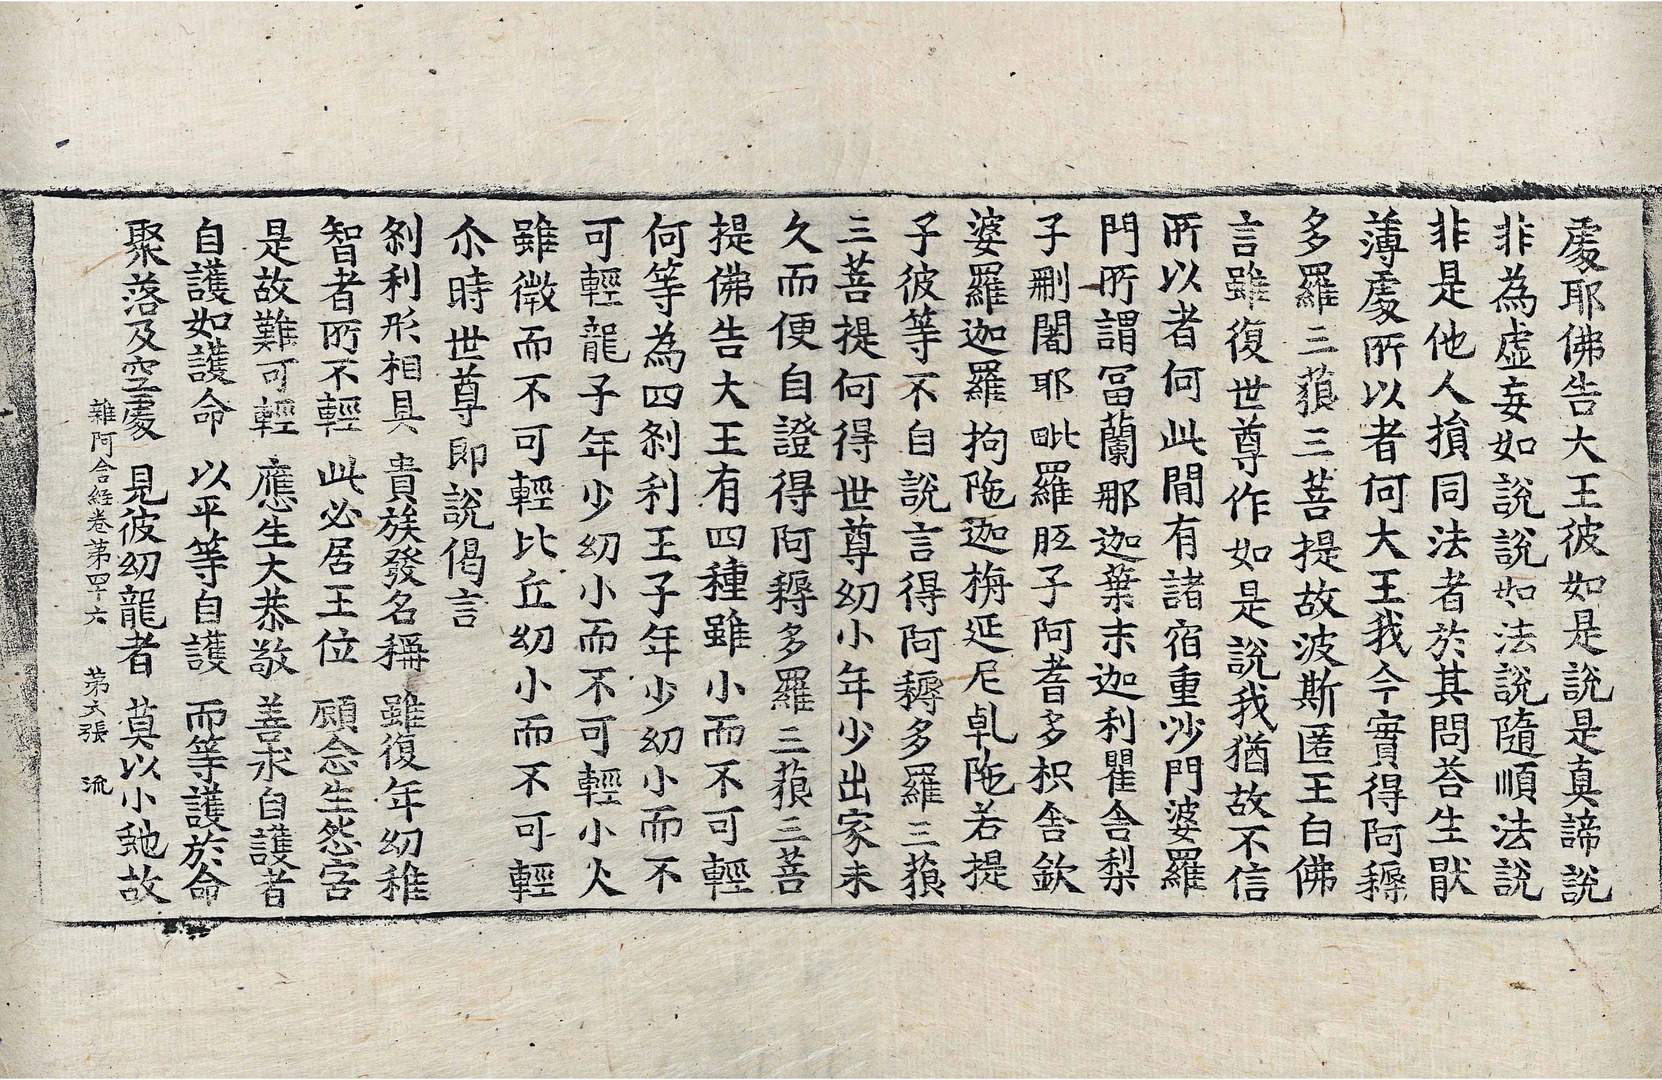 處耶佛告大王彼如是說是真諦說
非為虛妄如說說如法說隨順法說
非是他人損同法者於其問荅生厭
薄處所以者何大王我今實得阿耨
多羅三藐三菩提故波斯匿王白佛
言雖復世尊作如是說我猶故不信
所以者何此間有諸宿重沙門婆羅
門所謂冨蘭那迦葉末迦利瞿舍梨
子刪闍耶毗羅胝子阿耆多枳舍欽
婆羅迦羅拘陁迦栴延尼乹陁若提
子彼等不自說言得阿耨多羅三藐
三菩提何得世尊幼小年少出家未
久而便自證得阿耨多羅三藐三菩
提佛告大王有四種雖小而不可輕
何等為四剎利王子年少幼小而不
可輕龍子年少幼小而不可輕小火
雖微而不可輕比丘幼小而不可輕
尒時世尊即說偈言
剎利形相具 貴族發名稱 雖復年幼稚
智者所不輕 此必居王位 顧念生怨害
是故難可輕 應生大恭敬 善求自護者
自護如護命 以平等自護 而等護於命
聚落及空處 見彼幼龍者 莫以小虵故
雜阿含經卷第四十六 第六張 流